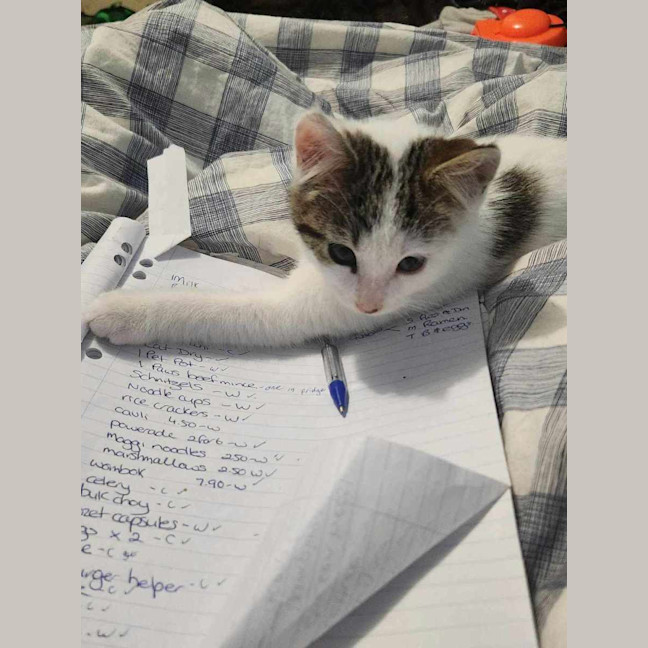 Milk
Cat Dry - C ✓
1 Pet Pot - W ✓
1 Paws beef mince - one in fridge
Schnitzels - W ✓
Noodle cups - W ✓
rice crackers - W ✓
cauli 4.50 - W
powerade 2 for 6 - W ✓
maggi noodles 2.50 - W ✓
marshmallows 2.50 W ✓
wombok 7.90 - W ✓
celery - C ✓
buk choy - C ✓
capsules - W ✓
x 2 - C ✓
e - C
urger helper - C ✓
- C ✓
- C ✓
- W ✓
M Ramen
T B & eggs